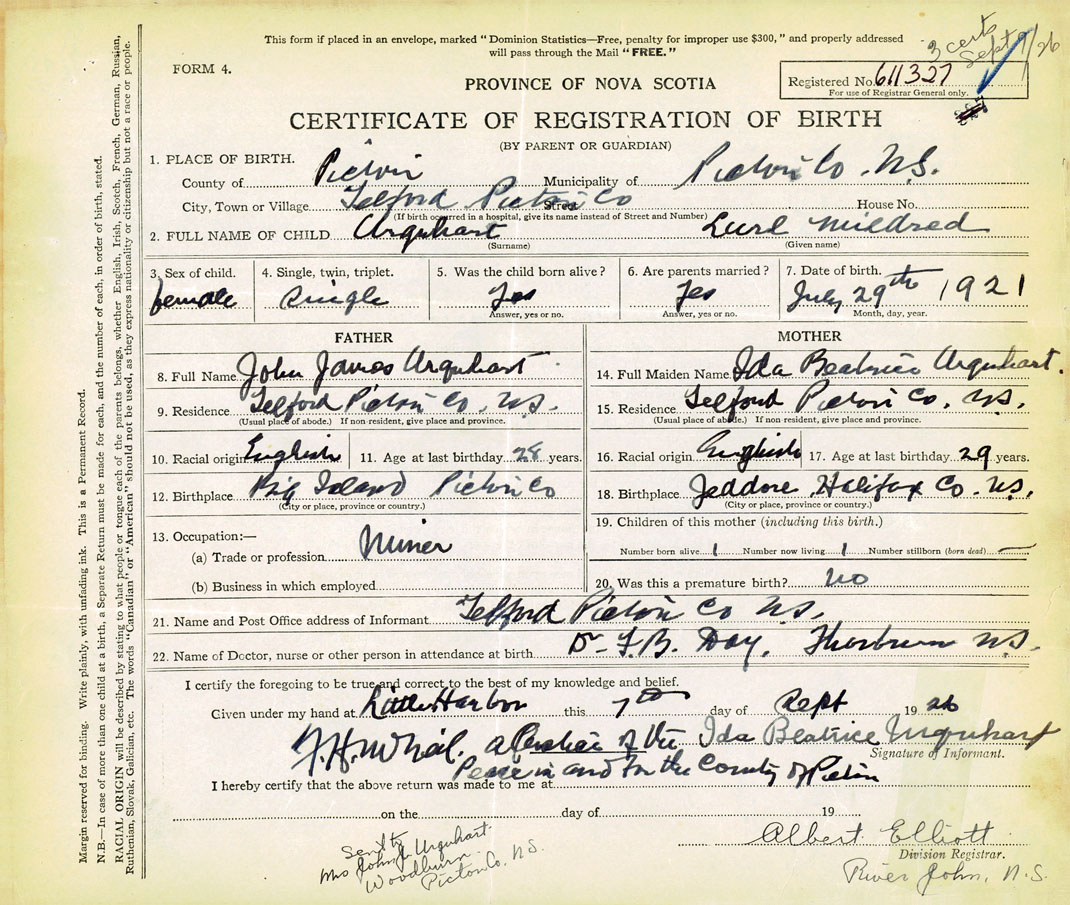 3 certs
Sept 9/26
This form if placed in an envelope, marked "Dominion Statistics—Free, penalty for improper use $300," and properly addressed
will pass through the Mail "FREE."
FORM 4.
PROVINCE OF NOVA SCOTIA
Registered No. 611327
For use of Registrar General only.
CERTIFICATE OF REGISTRATION OF BIRTH
(BY PARENT OR GUARDIAN)
1. PLACE OF BIRTH.
County of Pictou Municipality of Pictou Co. N.S.
City, Town or Village Telford Pictou Co Street House No.
(If birth occurred in a hospital, give its name instead of Street and Number)
2. FULL NAME OF CHILD Urquhart Mildred
(Surname) (Given name)
3. Sex of child. 4. Single, twin, triplet. 5. Was the child born alive? 6. Are parents married? 7. Date of birth.
female single Yes Yes July 29th 1921
Answer, yes or no. Answer, yes or no. Month, day, year.
FATHER MOTHER
8. Full Name John James Urquhart 14. Full Maiden Name Ida Beatrice Urquhart.
9. Residence Telford Pictou Co. N.S. 15. Residence Telford Pictou Co. N.S.
(Usual place of abode.) If non-resident, give place and province. (Usual place of abode.) If non-resident, give place and province.
10. Racial origin English 11. Age at last birthday 28 years. 16. Racial origin English 17. Age at last birthday 29 years.
12. Birthplace Big Island Pictou Co 18. Birthplace Jeddore Halifax Co. N.S.
(City or place, province or country.) (City or place, province or country.)
13. Occupation:— 19. Children of this mother (including this birth.)
(a) Trade or profession Miner Number born alive 1 Number now living 1 Number stillborn (born dead) —
(b) Business in which employed 20. Was this a premature birth? no
21. Name and Post Office address of Informant Telford Pictou Co N.S.
22. Name of Doctor, nurse or other person in attendance at birth Dr F.B. Day. Thorburn N.S.
I certify the foregoing to be true and correct to the best of my knowledge and belief.
Given under my hand at Little Harbor this 7th day of Sept 1926
a Justice of the Ida Beatrice Urquhart
Signature of Informant.
Peace in and for the County of Pictou
I hereby certify that the above return was made to me at
on the day of 19
Albert Elliott
Division Registrar.
River John, N.S.
Sent to
Mrs John J Urquhart
Woodburn
Pictou Co. N.S.
Margin reserved for binding. Write plainly, with unfading ink. This is a Permanent Record.
N.B.—In case of more than one child at a birth, a Separate Return must be made for each, and the number of each, in order of birth, stated.
RACIAL ORIGIN will be described by stating to what people or tongue each of the parents belongs, whether English, Irish, Scotch, French, German, Russian,
Ruthenian, Slovak, Galician, etc. The words "Canadian" or "American" should not be used, as they express nationality or citizenship but not a race or people.